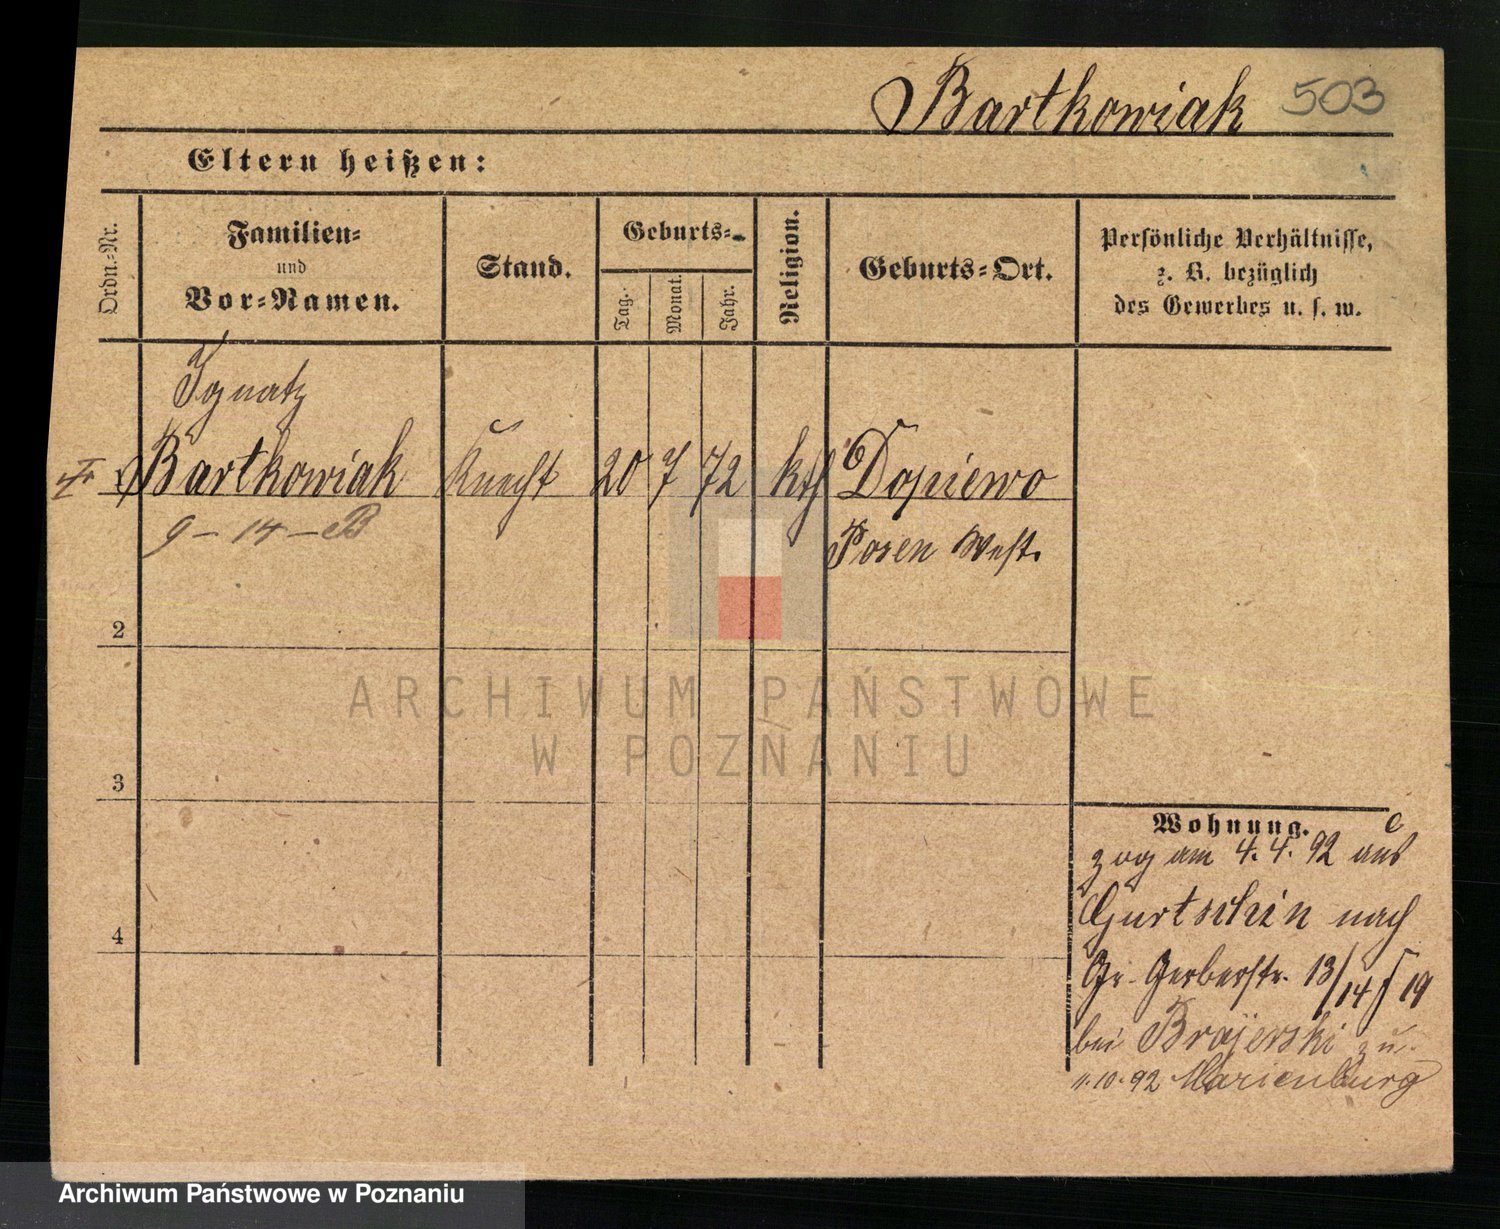 Bartkowiak 503
Eltern heißen:
Ordn.-Nr.
Familien-
und
Vor-Namen.
Stand.
Geburts-
Tag.
Monat.
Jahr.
Religion.
Geburts-Ort.
Persönliche Verhältnisse,
z. B. bezüglich
des Gewerbes u. s. w.
Ignatz
Bartkowiak Knecht 20 7 72 kth Dopiewo
9-14-B Posen West.
2
3
4
Wohnung.
zog am 4.4.92 aus
Gurtschin nach
Gr. Gerberstr. 13/14 19
bei Brojerski zu.
11.10.92 Marienburg
ARCHIWUM PAŃSTWOWE
W POZNANIU
Archiwum Państwowe w Poznaniu